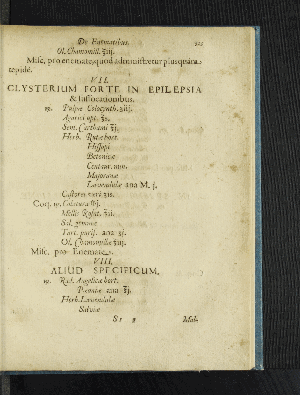 De Enematibus.
Ol. Chamomill. ℥iij.
Misc. pro enemate, quod administretur plusquam
tepidè.
VII.
CLYSTERIUM FORTE IN EPILEPSIA
& suffocationibus.
℞. Pulpæ Colocynth.
Agarici opt.
Sem. Carthami ℥j.
Herb. Rutæ hort.
Hissopi
Betonicæ
Centaur. min.
Majoranæ
Lavendulæ ana M. j.
Castorei
Coq. ℞. Colaturæ
Mellis Rosat. ℥ii.
Sal. gemmæ
Tart. purif. ana
Ol. Chamomillæ ℥iij.
Misc. pro Enemate.
VIII.
ALIUD SPECIFICUM.
℞. Rad. Angelicæ hort.
Pæoniæ ana ℥j.
Herb. Lavendulæ
Salviæ
Mal-